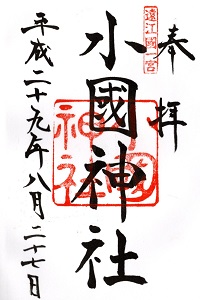 奉拝
遠江國一宮
小國神社
小國神社
平成二十九年八月二十七日